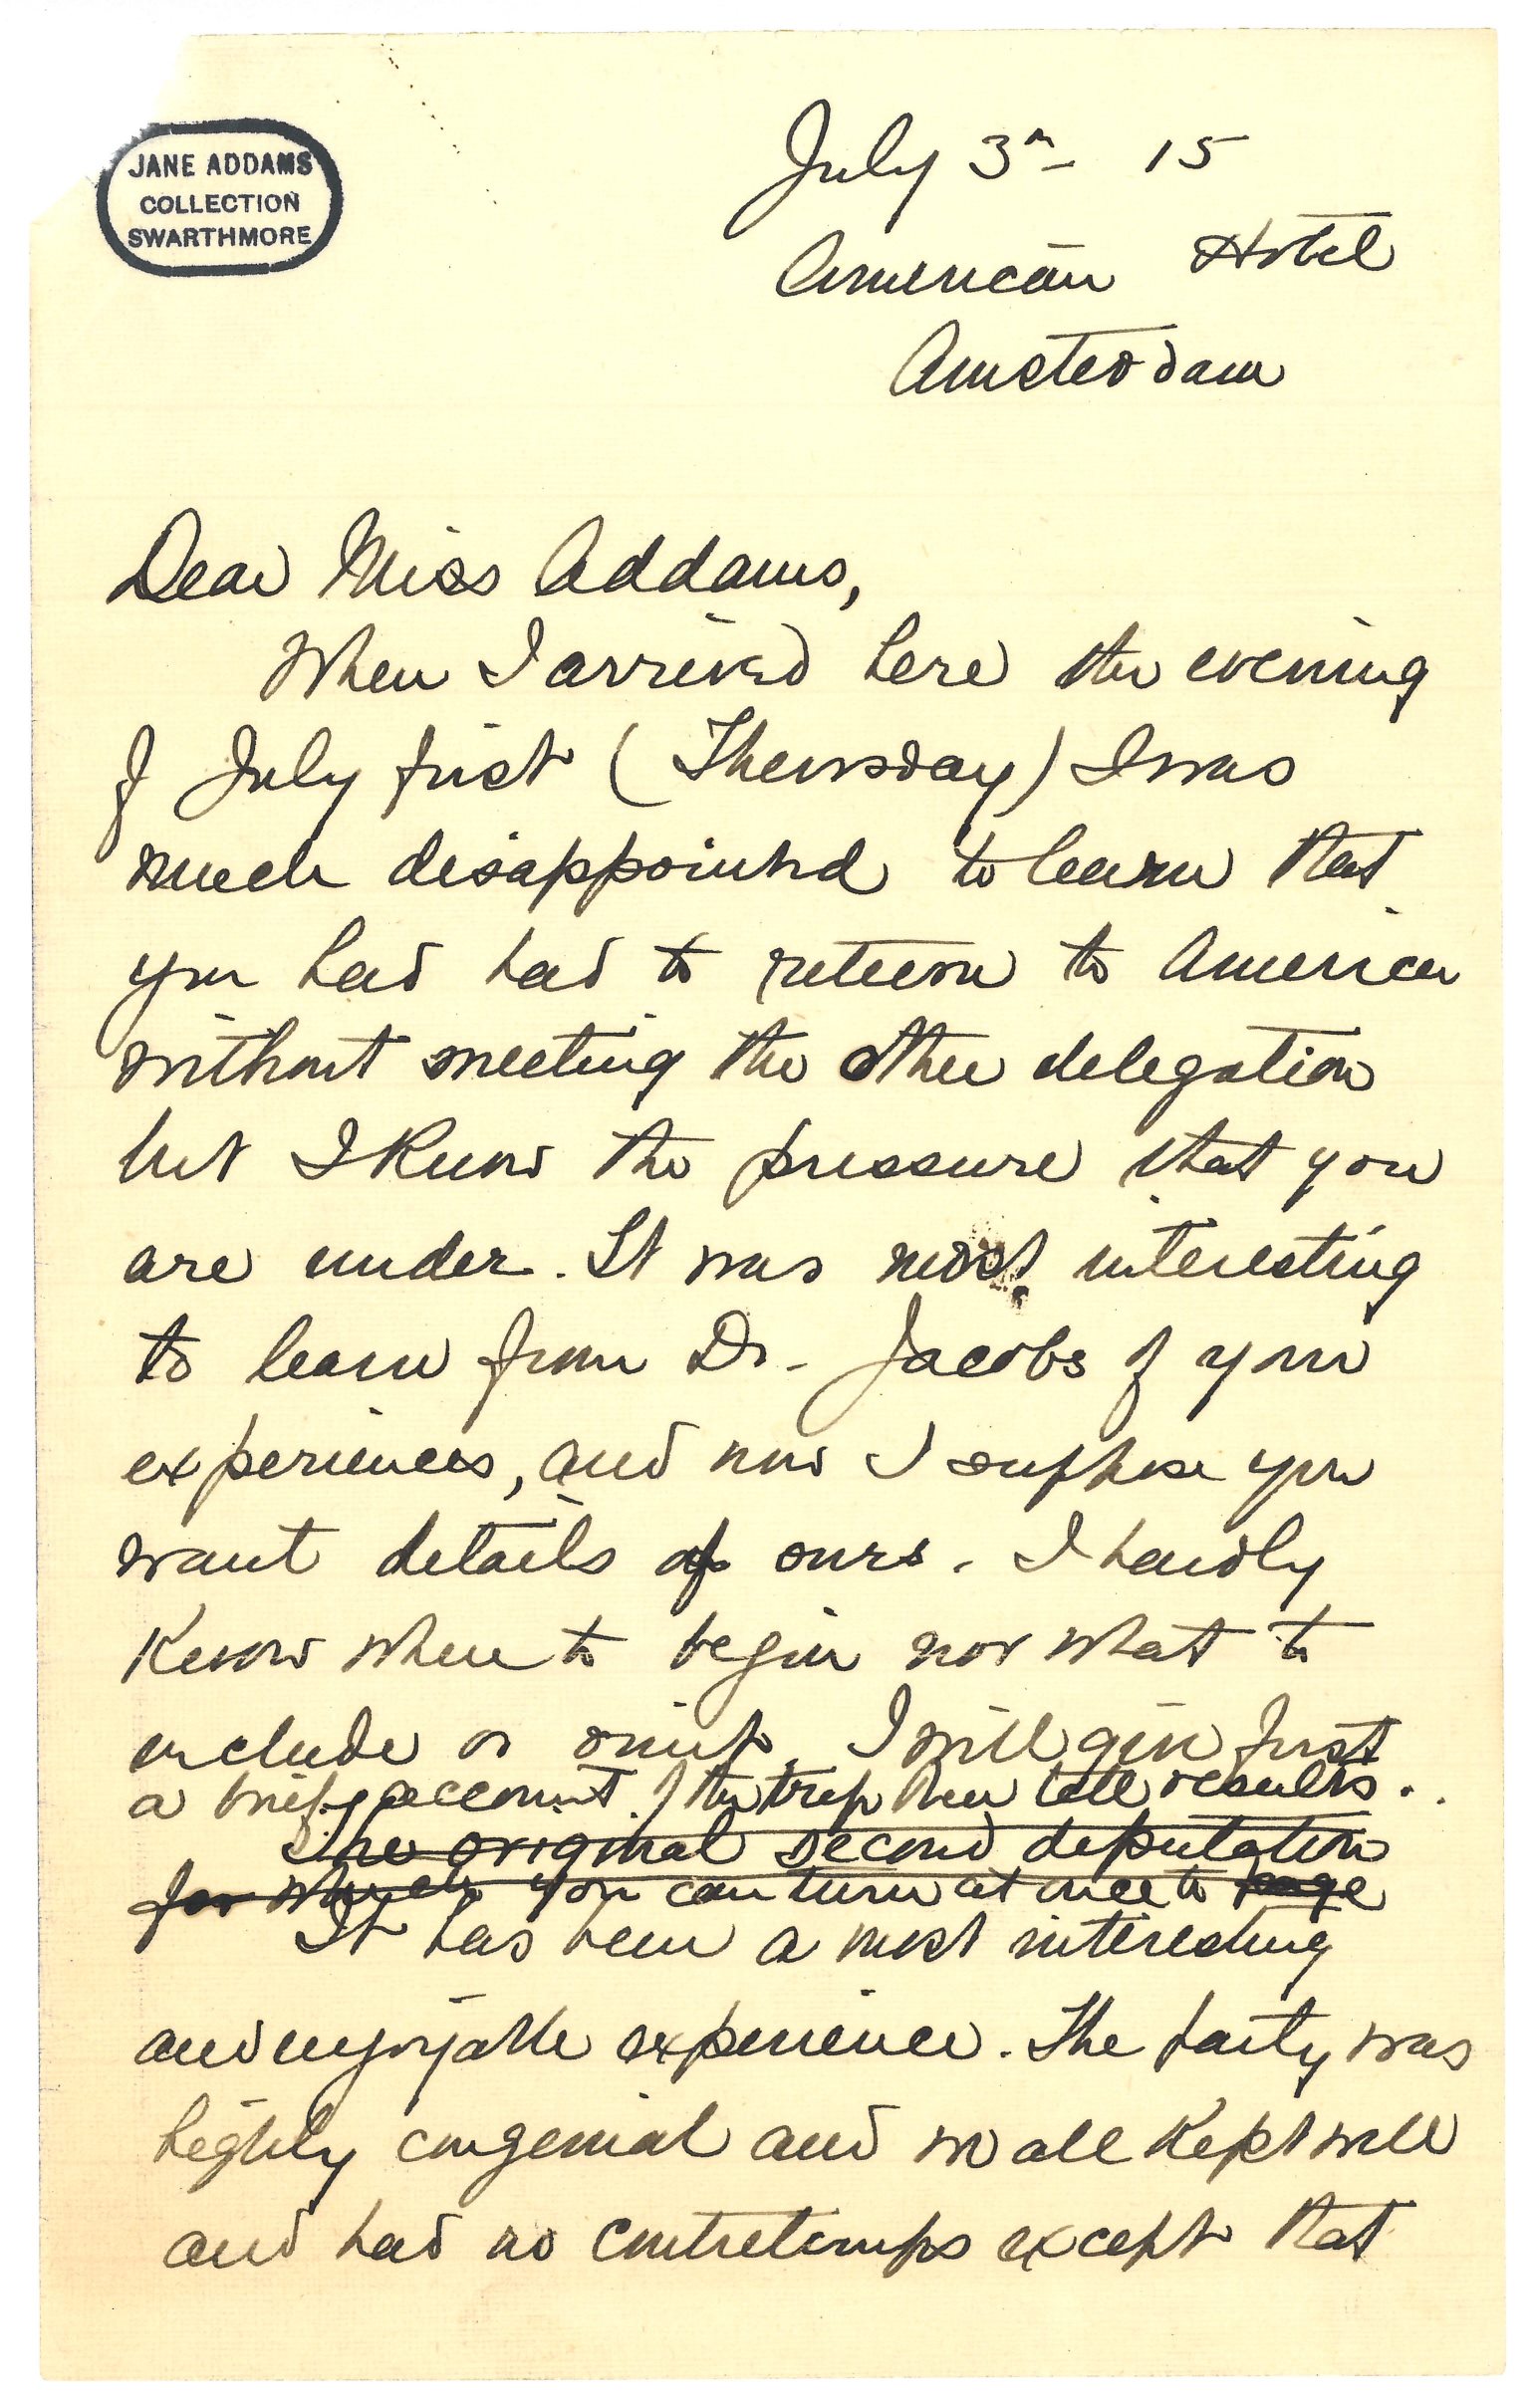 JANE ADDAMS
COLLECTION
SWARTHMORE
July 3rd 15
American Hotel
Amsterdam
Dear Miss Addams,
When I arrived here the evening
of July first (Thursday) I was
much disappointed to learn that
you had had to return to America
without meeting the other delegation
but I know the pressure that you
are under. It was most interesting
to learn from Dr. Jacobs of your
experiences, and now I suppose you
want details of ours. I hardly
know where to begin nor what to
include or omit. I will give first
a brief account of the trip then tell results.
The original second deputation
for which you can turn at once to page
It has been a most interesting
and enjoyable experience. The party was
highly congenial and we all kept well
and had no contretemps except that